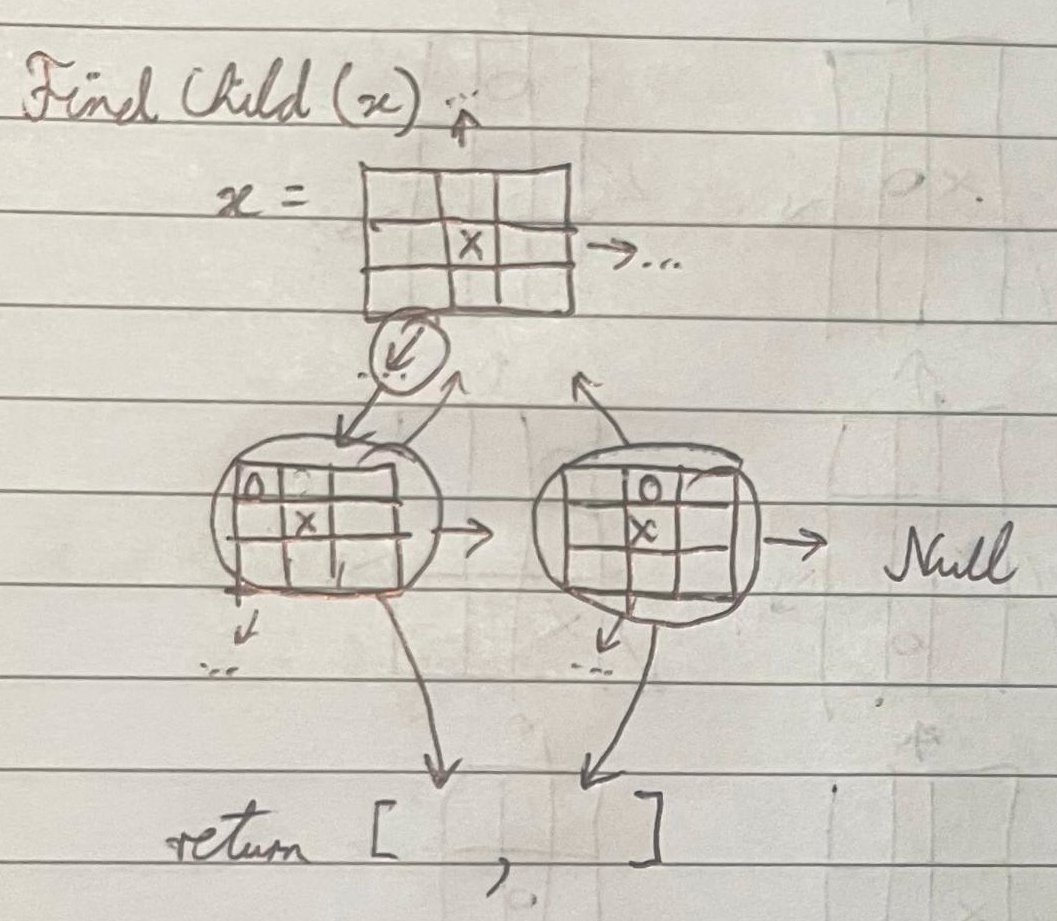 Find Child (x) ...
x =
X
...
...
O O
X X Null
... ...
return [ , ]